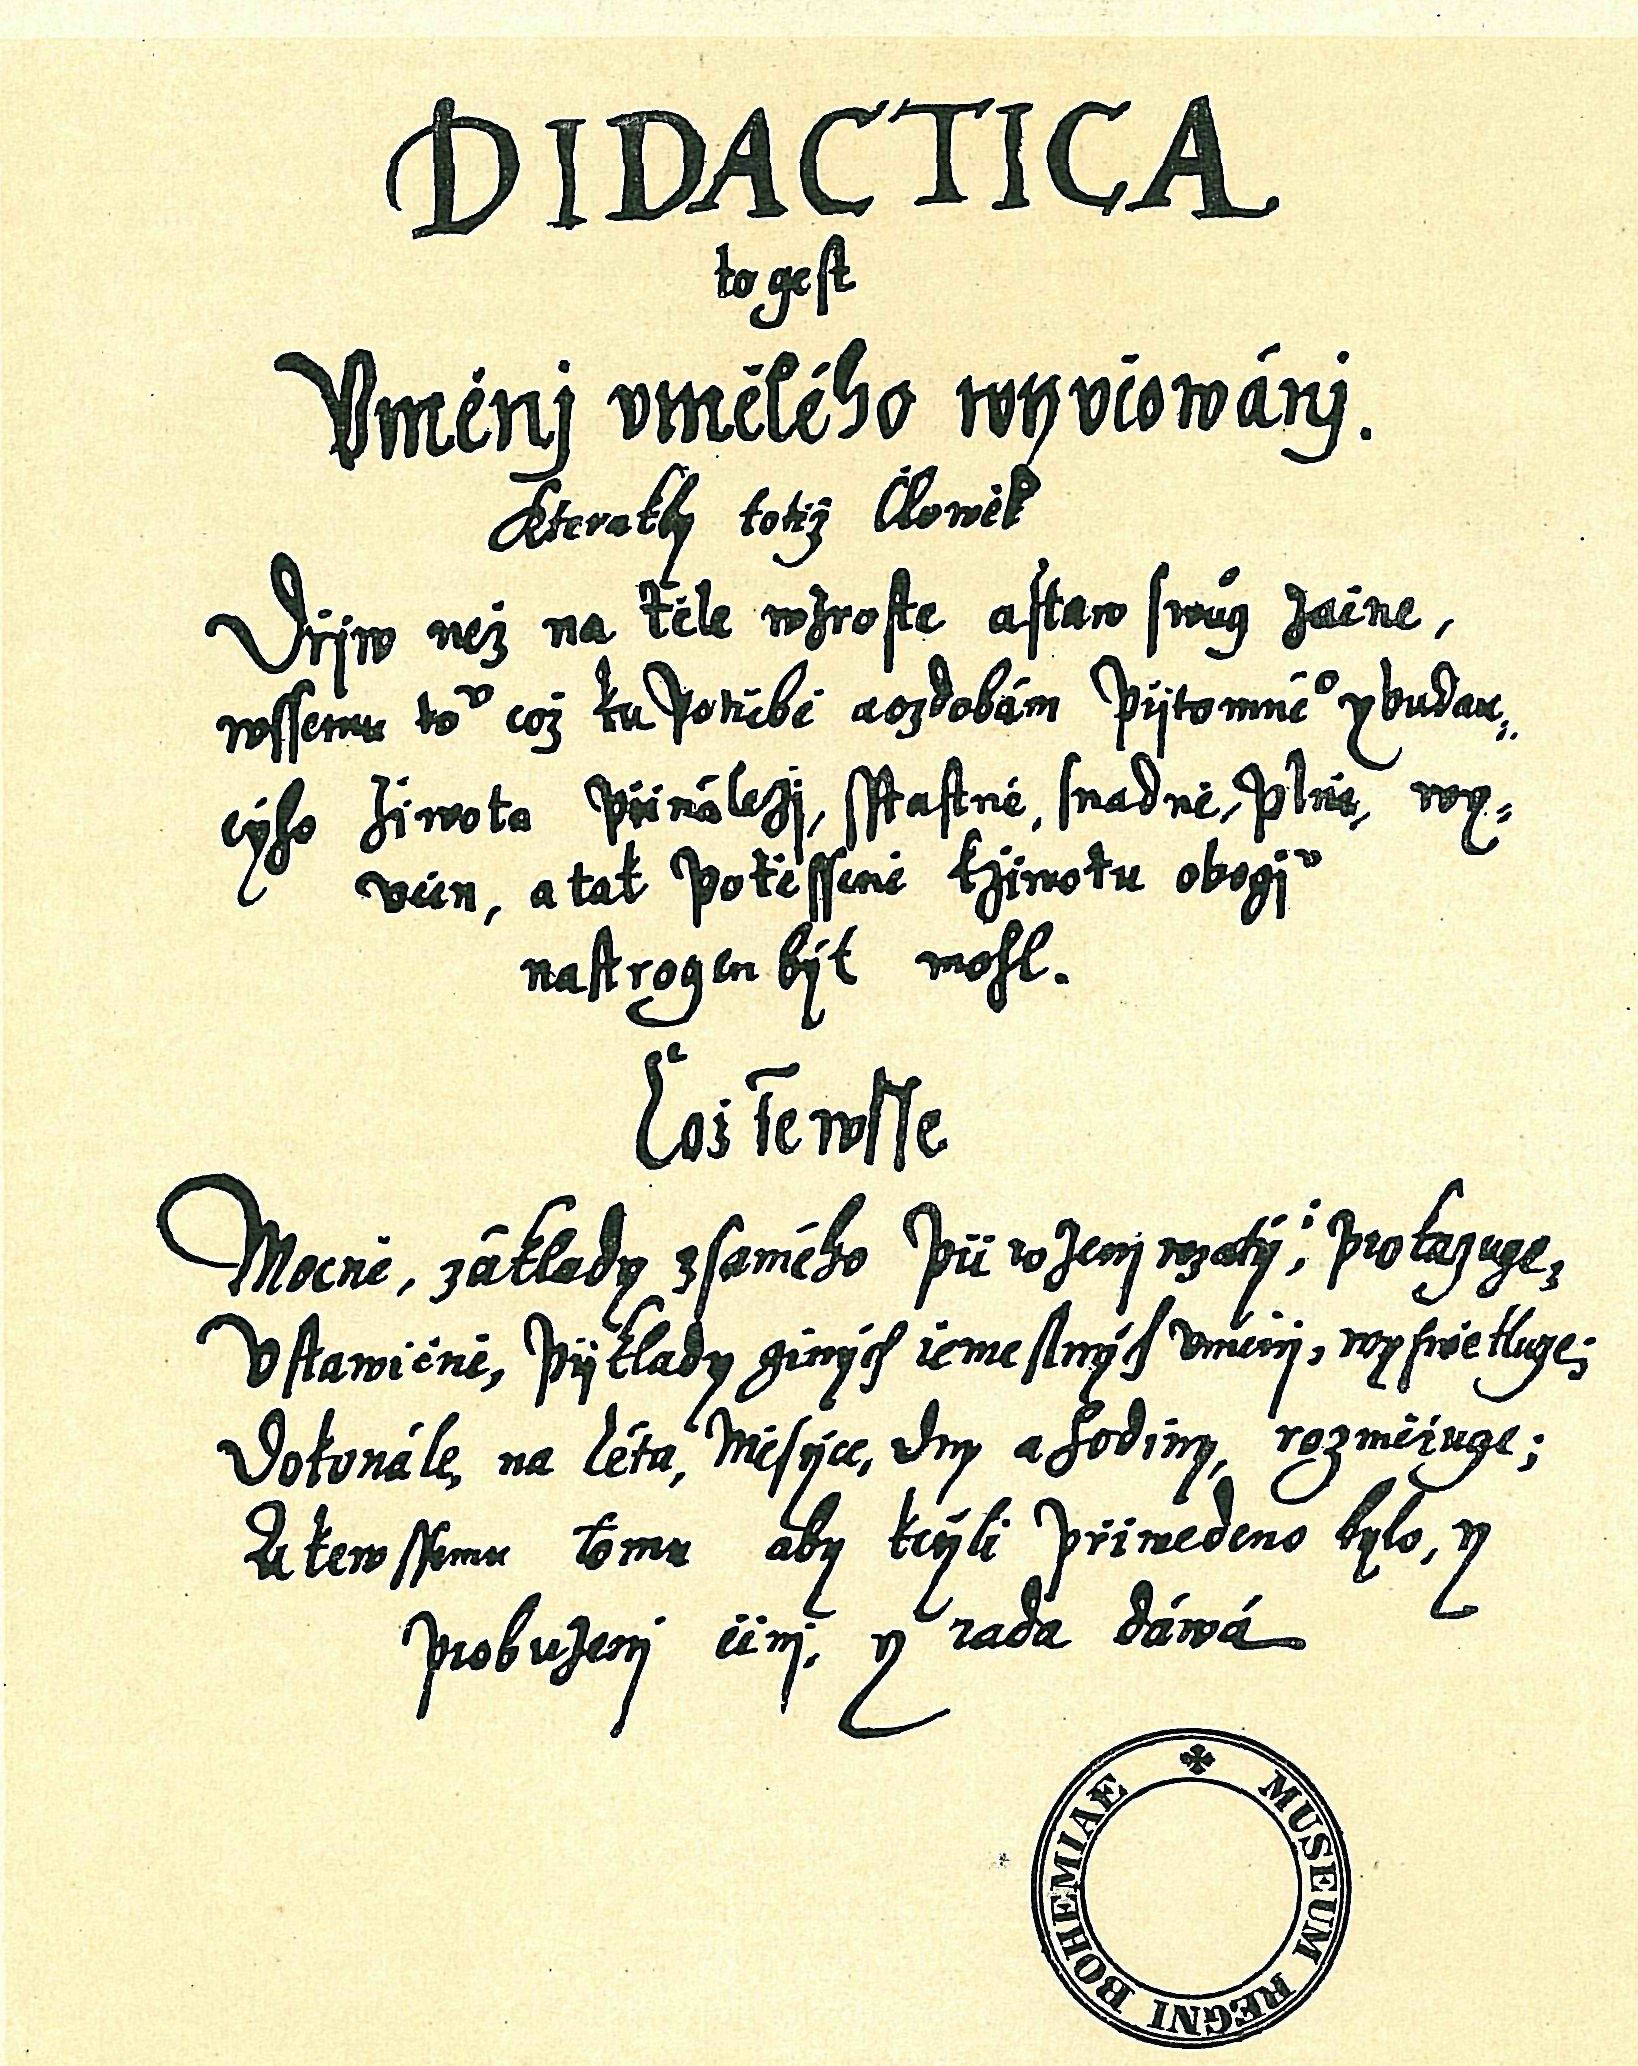 DIDACTICA
to gest
Vměnj vmělého wyvčowánj.
Kterakby totiž Člowěk
Dřjw než na těle wzroste a staw swůg začne,
wssemu to͛ což ku potřebě a ozdobám přjtomné° y budau„
cýho žiwota přináležj, sstastně, snadně, plně, wy„
včen, a tak potěsseně k žiwotu obogj͛
nastrogen být mohl.
Což te wsse
Mocně, základy z samého přirozenj wzatými, prokazuge,
Vstawičně, přjklady giných řemeslných vměnj, wyswětluge;
Dokonále, na léta, Měsýce, dny a hodiny, rozměřuge;
A ke wssemu tomu aby k cýli přiwedeno bylo, y
probuzenj činj, y rada dáwá
MUSEUM REGNI BOHEMIAE